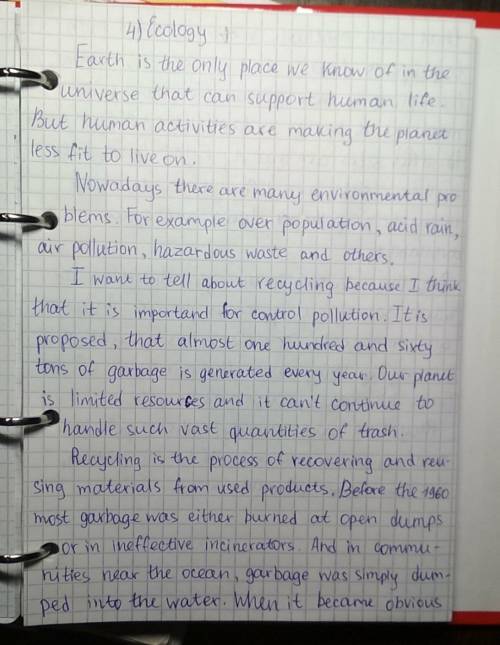 4) Ecology 1
Earth is the only place we know of in the
universe that can support human life.
But human activities are making the planet
less fit to live on.
Nowadays there are many environmental pro
blems. For example over population, acid rain,
air pollution, hazardous waste and others.
I want to tell about recycling because I think
that it is importand for control pollution. It is
proposed, that almost one hundred and sixty
tons of garbage is generated every year. Our planet
is limited resources and it can't continue to
handle such vast quantities of trash.
Recycling is the process of recovering and reu-
sing materials from used products. Before the 1960
most garbage was either burned at open dumps
or in ineffective incinerators. And in commu-
nities near the ocean, garbage was simply dum-
ped into the water. When it became obvious